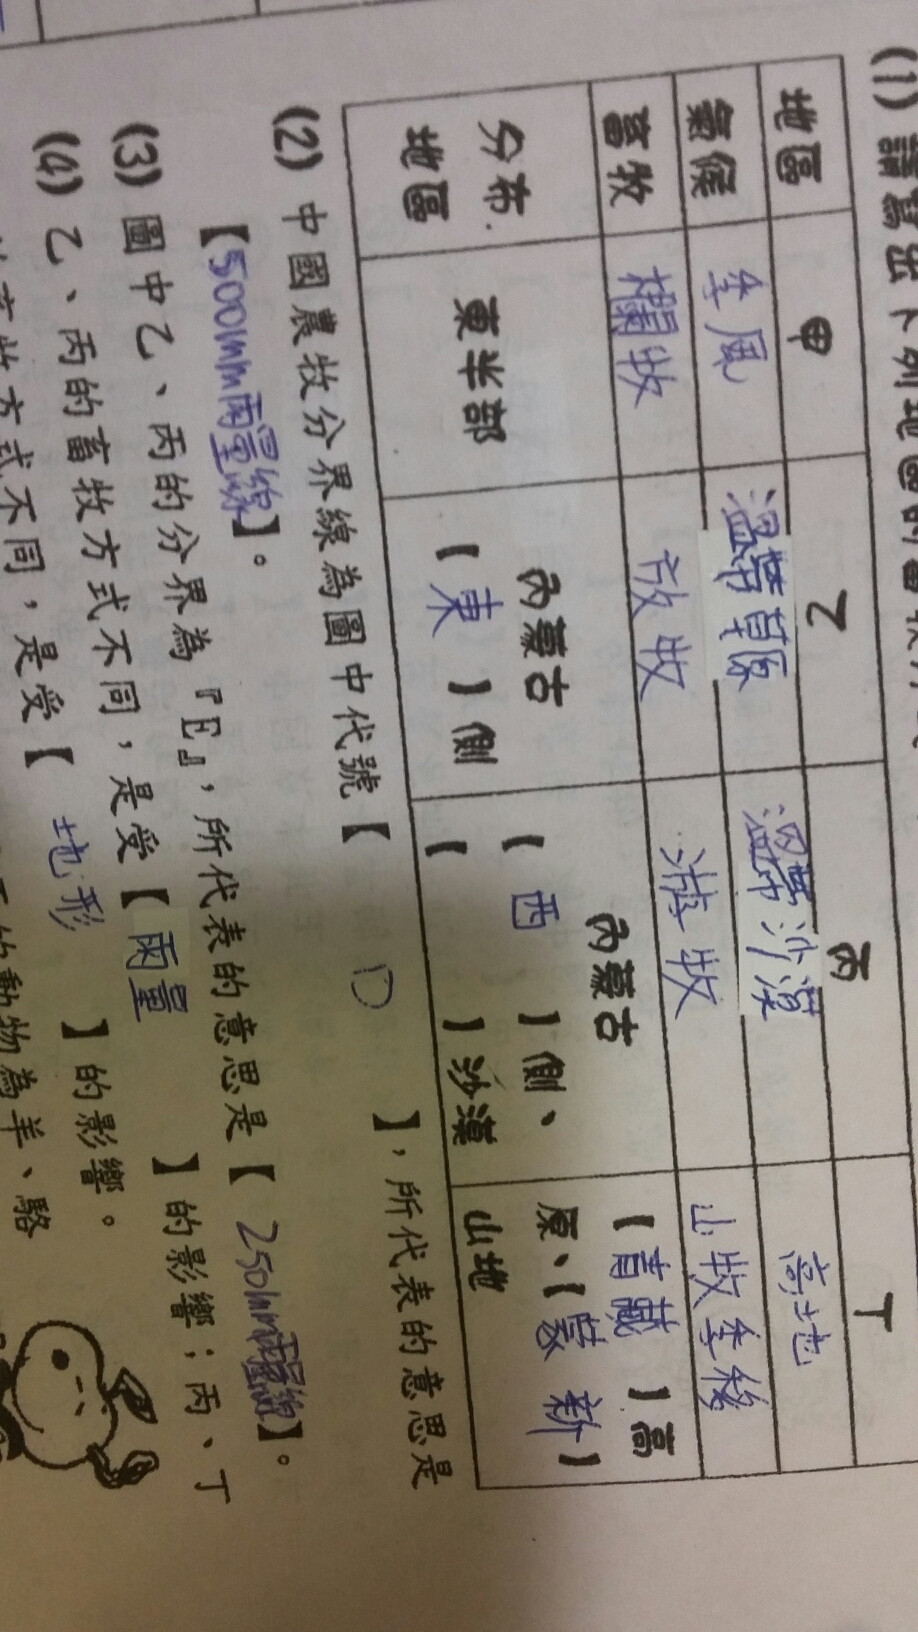 (1) 請寫出下列地區的畜牧
地區 甲 乙 丙 丁
氣候 季風 溫帶草原 溫帶沙漠 高地
畜牧 欄牧 放牧 游牧 山牧季移
分布地區 東半部 內蒙古【東】側 內蒙古【西】側、【 】沙漠 【青藏】高原、【蒙新】山地
(2) 中國農牧分界線為圖中代號【 D 】,所代表的意思是
【500mm雨量線】。
(3) 圖中乙、丙的分界為『E』,所代表的意思是【250mm雨量線】。
(4) 乙、丙的畜牧方式不同,是受【雨量】的影響;丙、丁
的畜牧方式不同,是受【地形】的影響。
的動物為羊、駱